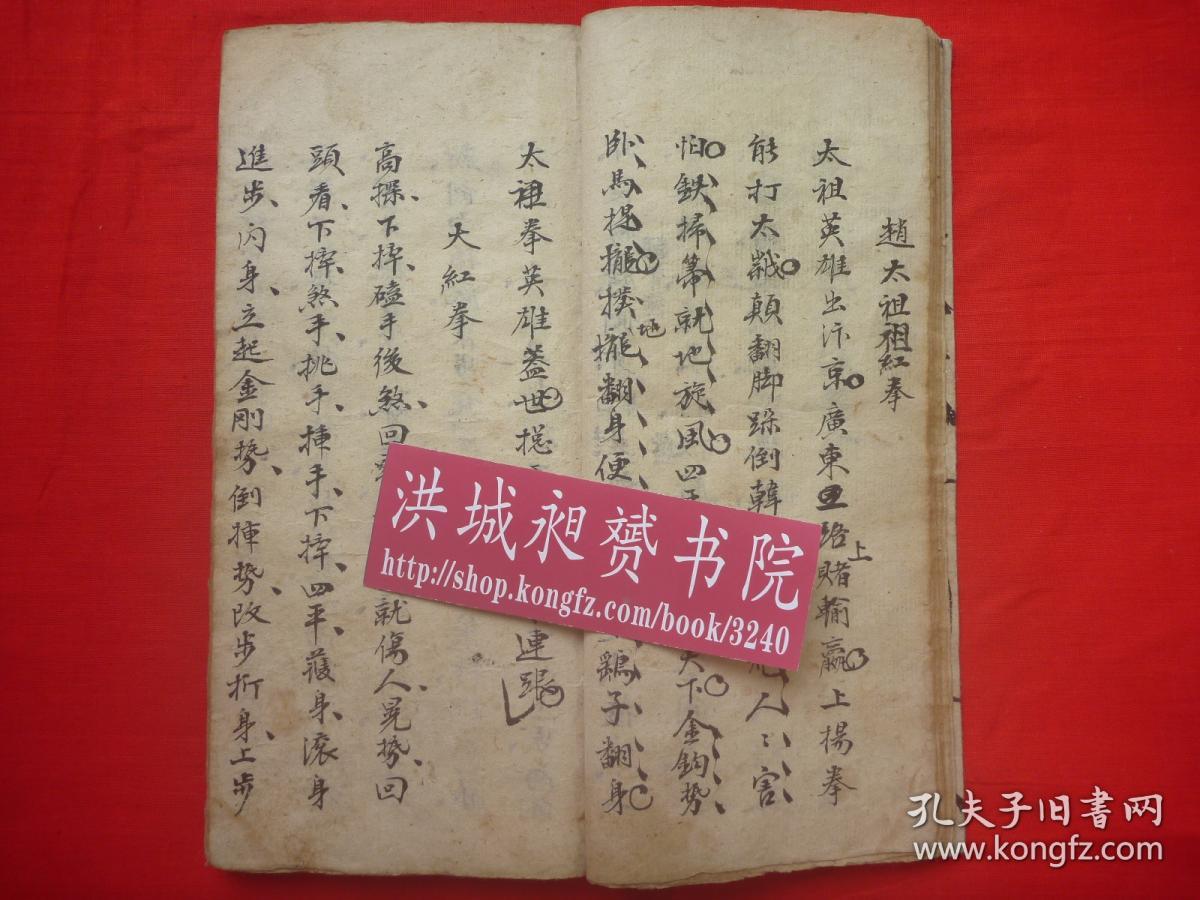 趙太祖祖紅拳
太祖英雄出汴京廣東五路上賭輸贏上揚拳
能打太巔顛翻脚跺倒韓人〻害
怕鉄掃箒就地旋風四天下金鈎势
卧馬提攏撲攏地翻身便鷂子翻身
太祖拳英雄蓋世連
大紅拳
高探、下捽、磕手後煞、回就傷人、晃势、回
頭看、下捽、煞手、挑手、捶手、下捽、四平、護身、滚身
進步、闪身、立起金剛势、倒捶势、改步折身、上步
洪城昶赟书院
http://shop.kongfz.com/book/3240
孔夫子旧书网
www.kongfz.com